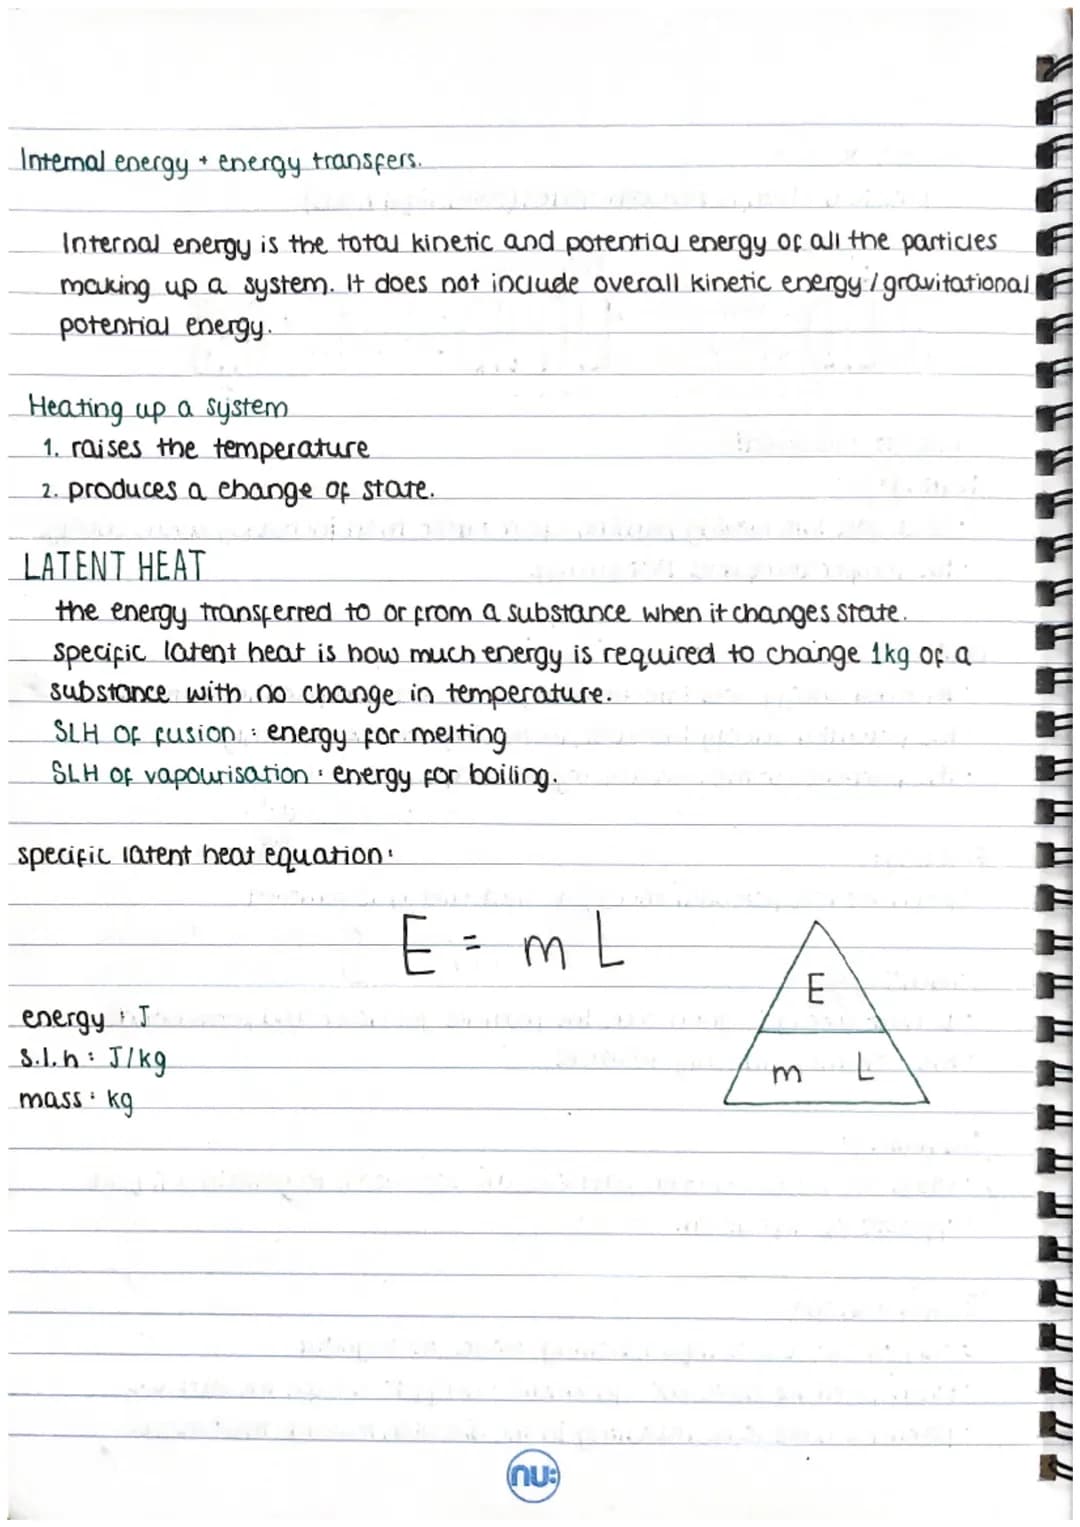 Internal energy + energy transfers.
Internal energy is the total kinetic and potential energy of all the particles
making up a system. It does not include overall kinetic energy / gravitational
potential energy.
Heating up a system
1. raises the temperature
2. produces a change of state.
LATENT HEAT
the energy transferred to or from a substance when it changes state.
specific latent heat is how much energy is required to change 1kg of a
substance with no change in temperature.
SLH of fusion : energy for melting
SLH of vapourisation : energy for boiling.
specific latent heat equation:
E = m L
E
m L
energy : J
s.l.h : J/kg
mass : kg
nu: